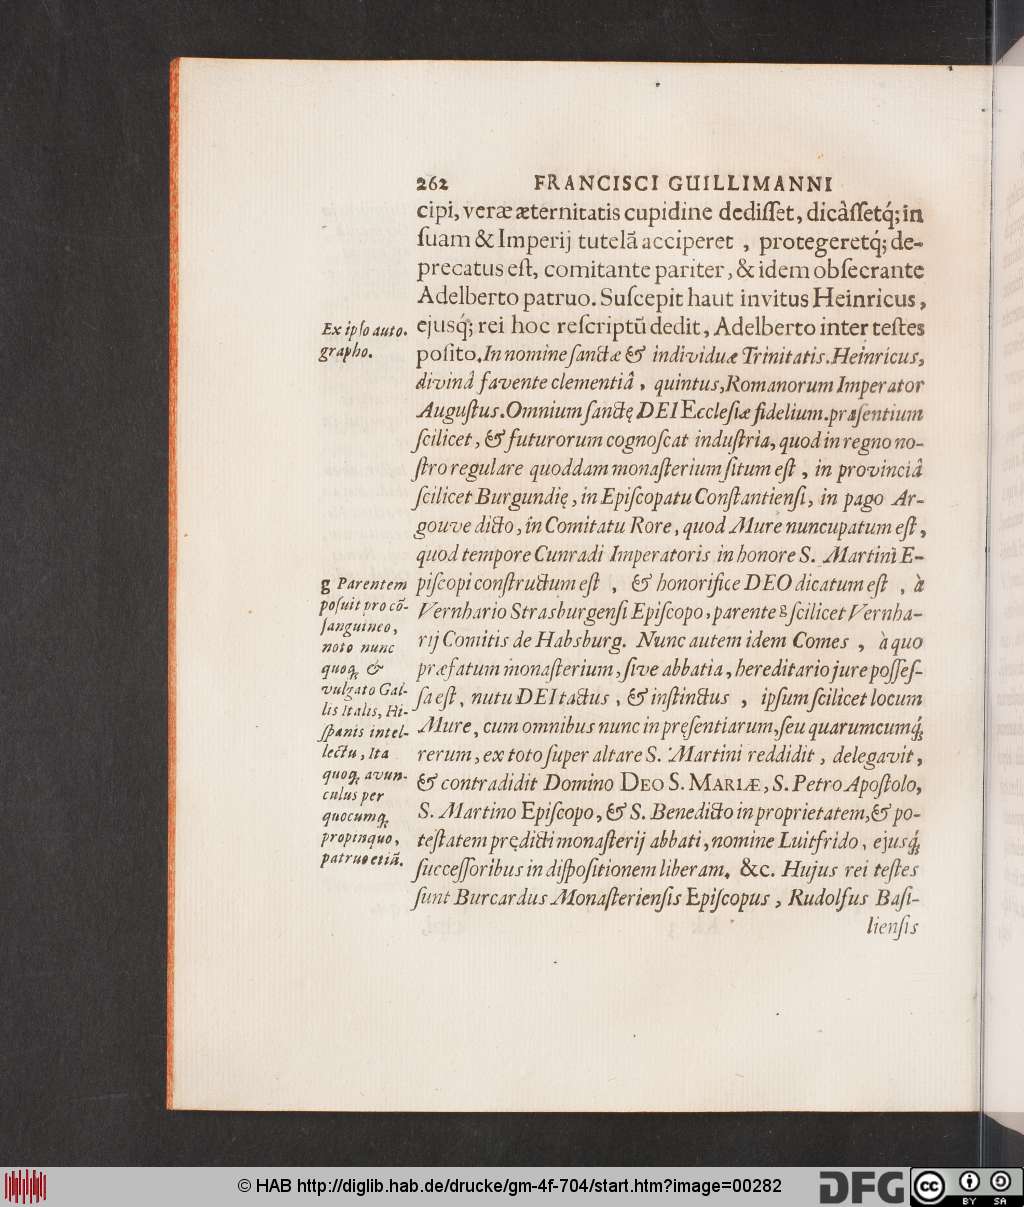 262 FRANCISCI GUILLIMANNI
cipi, veræ æternitatis cupidine dediſſet, dicàſſetq́; in
ſuam & Imperij tutelã acciperet , protegeretq́; de-
precatus eſt, comitante pariter, & idem obſecrante
Adelberto patruo. Suſcepit haut invitus Heinricus,
ejusq́; rei hoc reſcriptũ dedit, Adelberto inter teſtes
poſito. In nomine ſanctæ & individuæ Trinitatis. Heinricus,
divinâ favente clementiâ , quintus, Romanorum Imperator
Auguſtus. Omnium ſanctę DEI Eccleſiæ fidelium. præſentium
ſcilicet, & futurorum cognoſcat induſtria, quod in regno no-
ſtro regulare quoddam monaſterium ſitum eſt , in provinciâ
ſcilicet Burgundię, in Epiſcopatu Conſtantienſi, in pago Ar-
gouve dicto, in Comitatu Rore, quod Mure nuncupatum eſt,
quod tempore Cunradi Imperatoris in honore S. Martini E-
piſcopi conſtructum eſt , & honorifice DEO dicatum eſt , à
Vernhario Strasburgenſi Epiſcopo, parente g ſcilicet Vernha-
rij Comitis de Habsburg. Nunc autem idem Comes , à quo
præfatum monaſterium, ſive abbatia, hereditario jure poſſeſ-
ſa eſt, nutu DEI tactus, & inſtinctus , ipſum ſcilicet locum
Mure, cum omnibus nunc in pręſentiarum, ſeu quarumcumq́;
rerum, ex toto ſuper altare S. Martini reddidit, delegavit,
& contradidit Domino DEO S. MARIÆ, S. Petro Apoſtolo,
S. Martino Epiſcopo, & S. Benedicto in proprietatem, & po-
teſtatem prędicti monaſterij abbati, nomine Luitfrido, ejusq́;
ſucceſſoribus in diſpoſitionem liberam. &c. Hujus rei teſtes
ſunt Burcardus Monaſterienſis Epiſcopus, Rudolfus Baſi-
lienſis
Ex ipſo auto-
grapho.
g Parentem
poſuit pro cõ-
ſanguineo,
noto nunc
quoq; &
vulgato Gal-
lis Italis, Hi-
ſpanis intel-
lectu, Ita
quoq; avun-
culus per
quocumq;
propinquo,
patruo etiã.
© HAB http://diglib.hab.de/drucke/gm-4f-704/start.htm?image=00282
DFG
cc BY SA